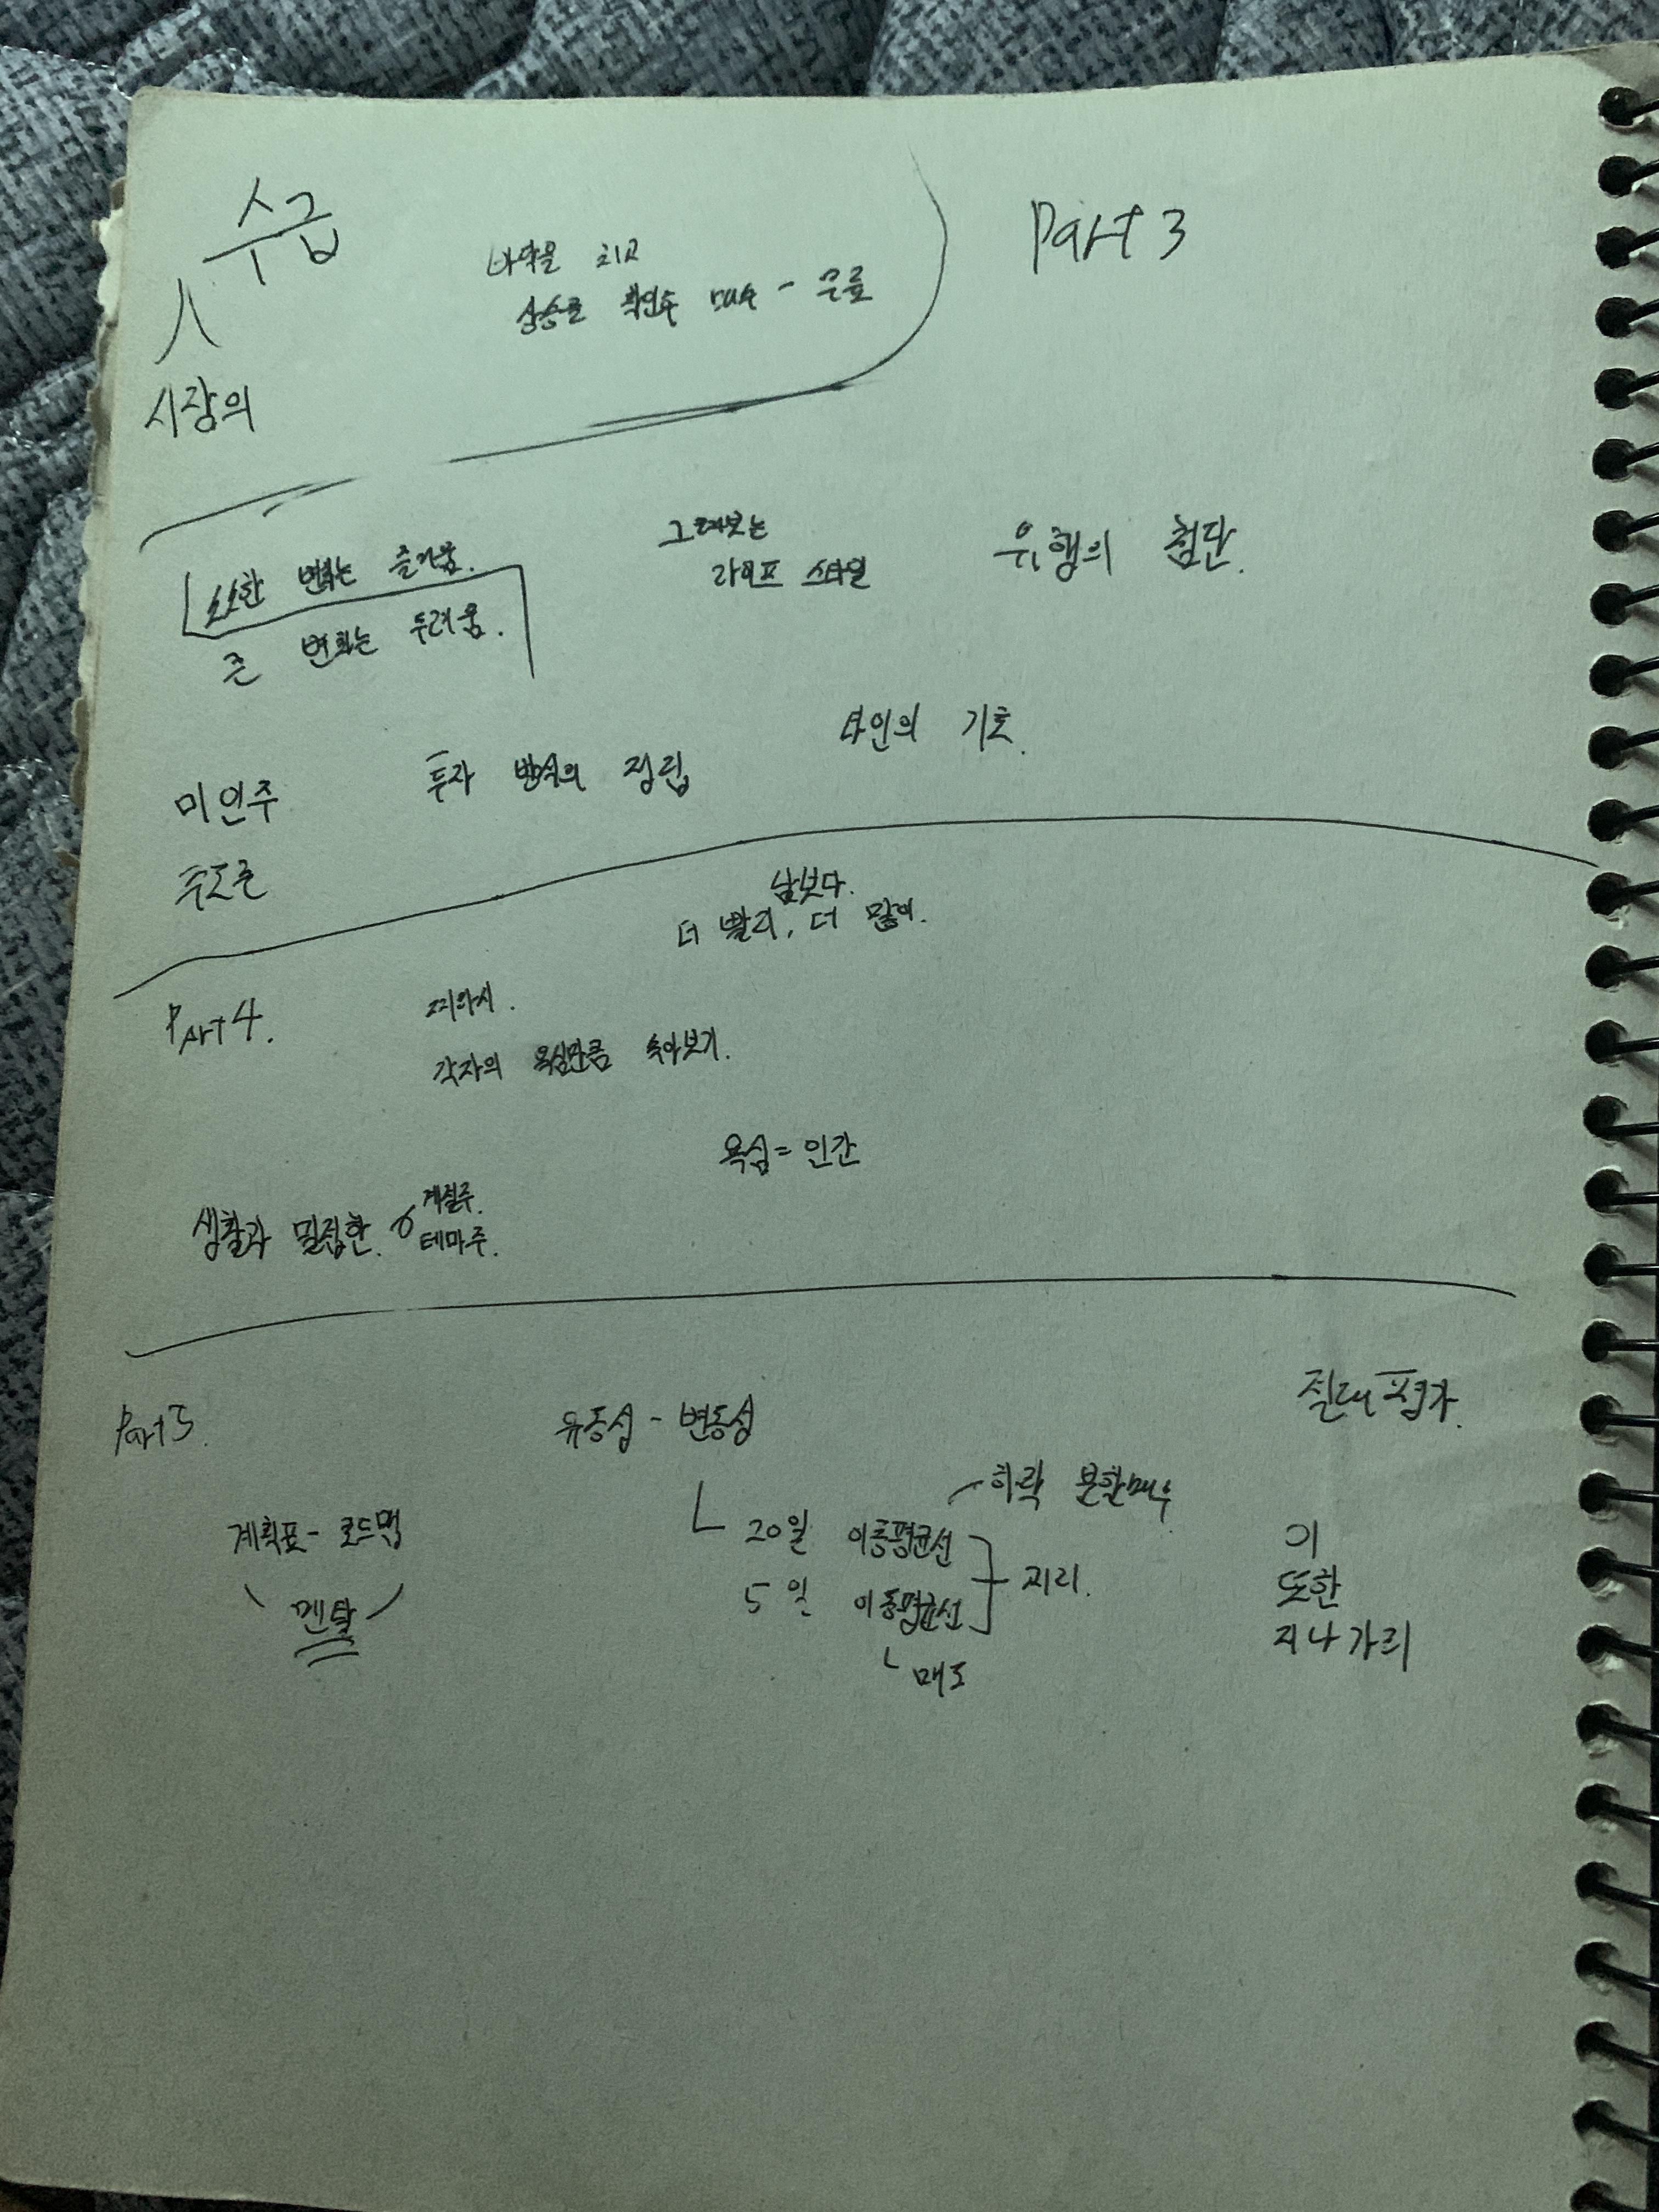 수급
시장의
바닥을 치고
상승을 확인후 매수 - 무릎
Part 3
사소한 변화는 즐거움.
큰 변화는 두려움.
그려보는
라이프 스타일
유행의 첨단.
미인주
주도주
투자 방식의 정립
타인의 기호.
남보다.
더 빨리, 더 많이.
Part 4.
찌라시.
각자의 욕심만큼 속아보기.
욕심 = 인간
생활과 밀접한.
계절주.
테마주.
Part 5.
유동성 - 변동성
계획표 - 로드맵
멘탈
하락 분할매수
20일 이동평균선
5일 이동평균선
매도
이
또한
지나가리